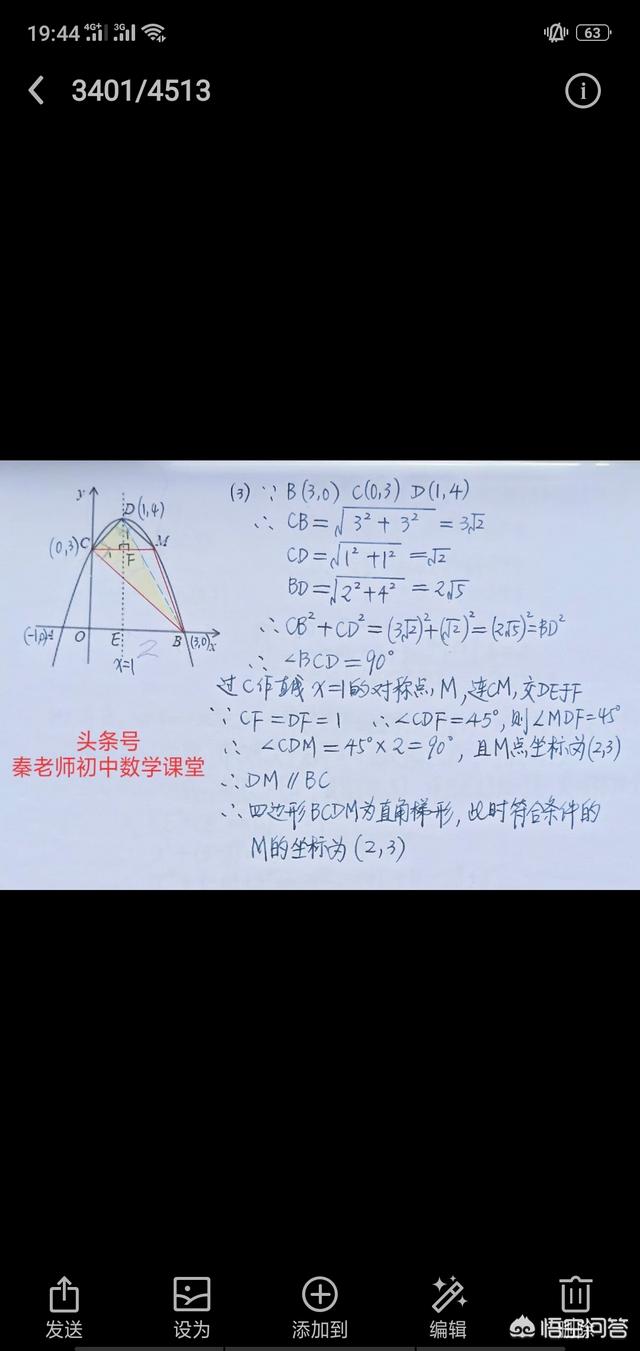 19:44 4G+ 3G 63
3401/4513
y
D(1,4)
(0,3) C
M
F
(-1,0)
O
E
B (3,0) x
2
x=1
头条号
秦老师初中数学课堂
(3) ∵ B(3,0) C(0,3) D(1,4)
∴ CB=√3²+3² =3√2
CD=√1²+1² =√2
BD=√2²+4² =2√5
∴CB²+CD²=(3√2)²+(√2)²=(2√5)²=BD²
∴ ∠BCD=90°
过C作直线x=1的对称点M,连CM,交DE于F
∵ CF=DF=1 ∴∠CDF=45°,则∠MDF=45°
∴ ∠CDM=45°×2=90°, 且M点坐标为(2,3)
∴DM∥BC
∴四边形BCDM为直角梯形,此时符合条件的
M的坐标为(2,3)
发送
设为
添加到
编辑
悟空问答